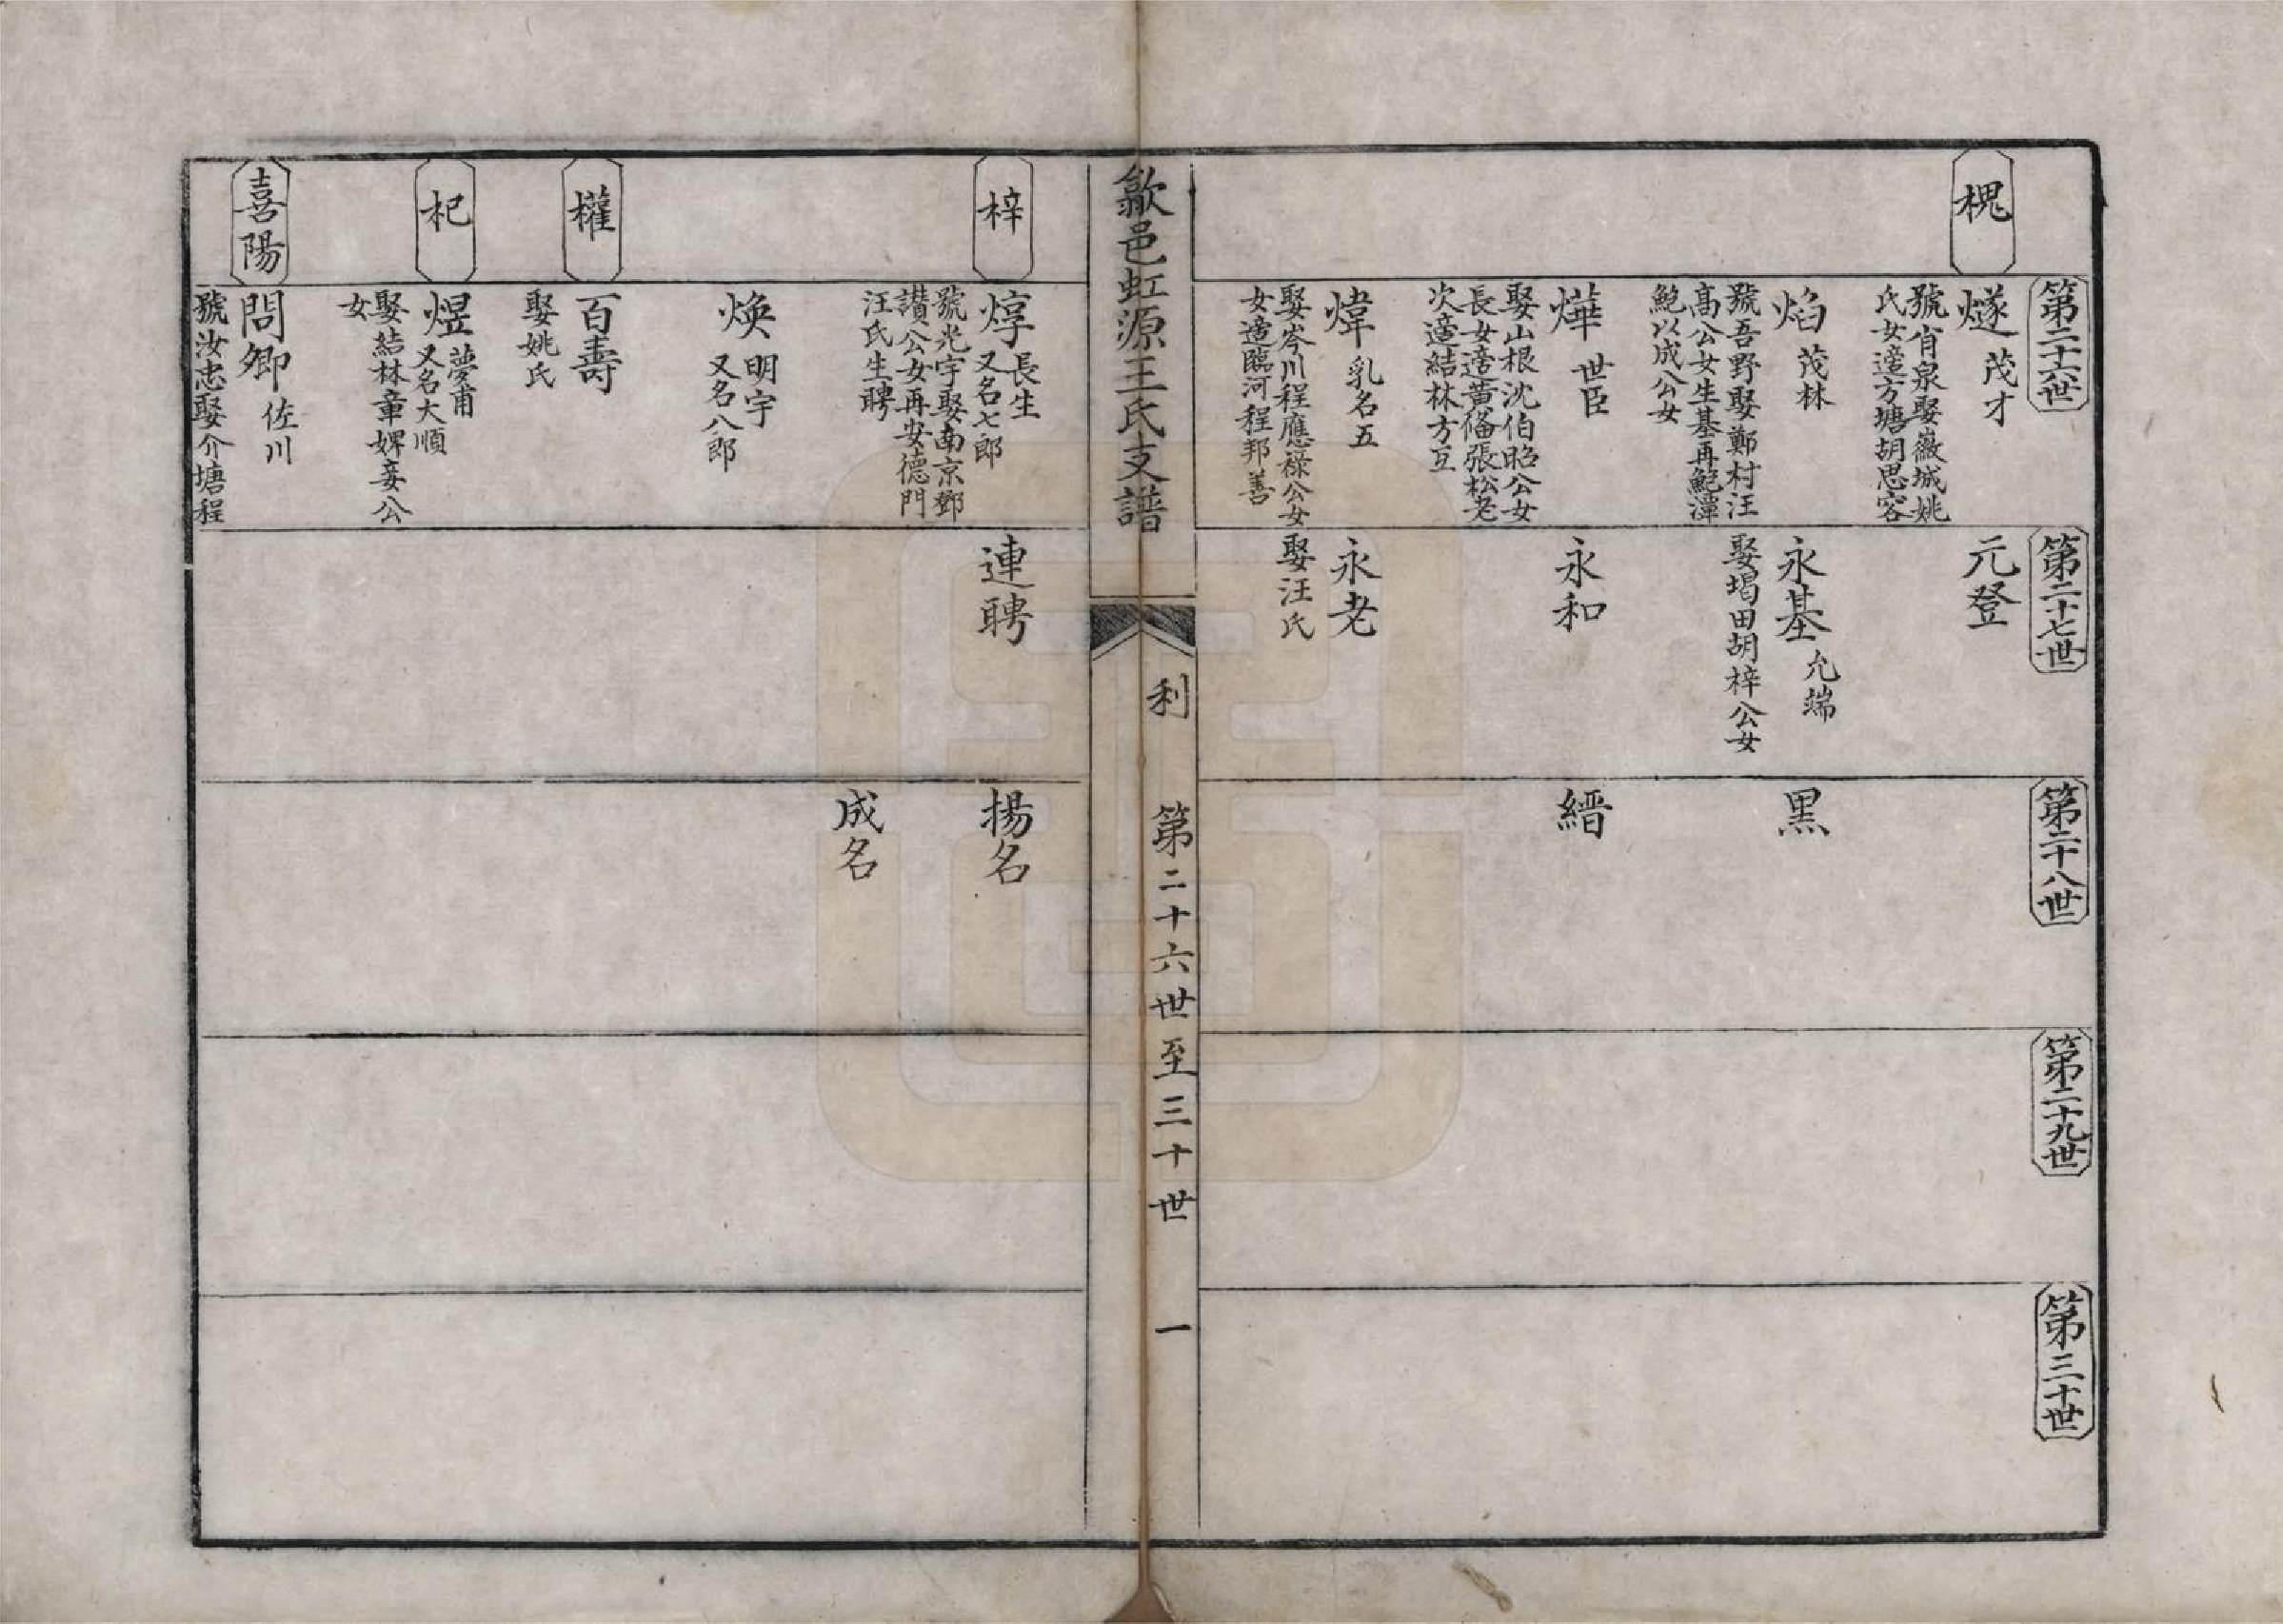 槐
第二十六世
燧 茂才
號肖泉娶嶽城姚
氏女適方塘胡思容
焰 茂林
號吾野娶鄭村汪
高公女生基再鮑潭
鮑以成公女
燁 世臣
娶山根沈伯昭公女
長女適黃備張松老
次適結林方互
煒 乳名五
娶岑川程應祿公女
女適臨河程邦善
第二十七世
元登
永基 允端
娶堨田胡梓公女
永和
永老
娶汪氏
第二十八世
黑
縉
第二十九世
第三十世
歙邑虹源王氏支譜
利
第二十六世至三十世
一
梓
權
杞
喜陽
焞 長生
又名七郎
號光宇娶南京鄧
讃公女再安德門
汪氏生聘
煥 明宇
又名八郎
百壽
娶姚氏
煜 夢甫
又名大順
娶結林章婢妾公
女
問卿 佐川
號汝忠娶介塘程
連聘
揚名
成名